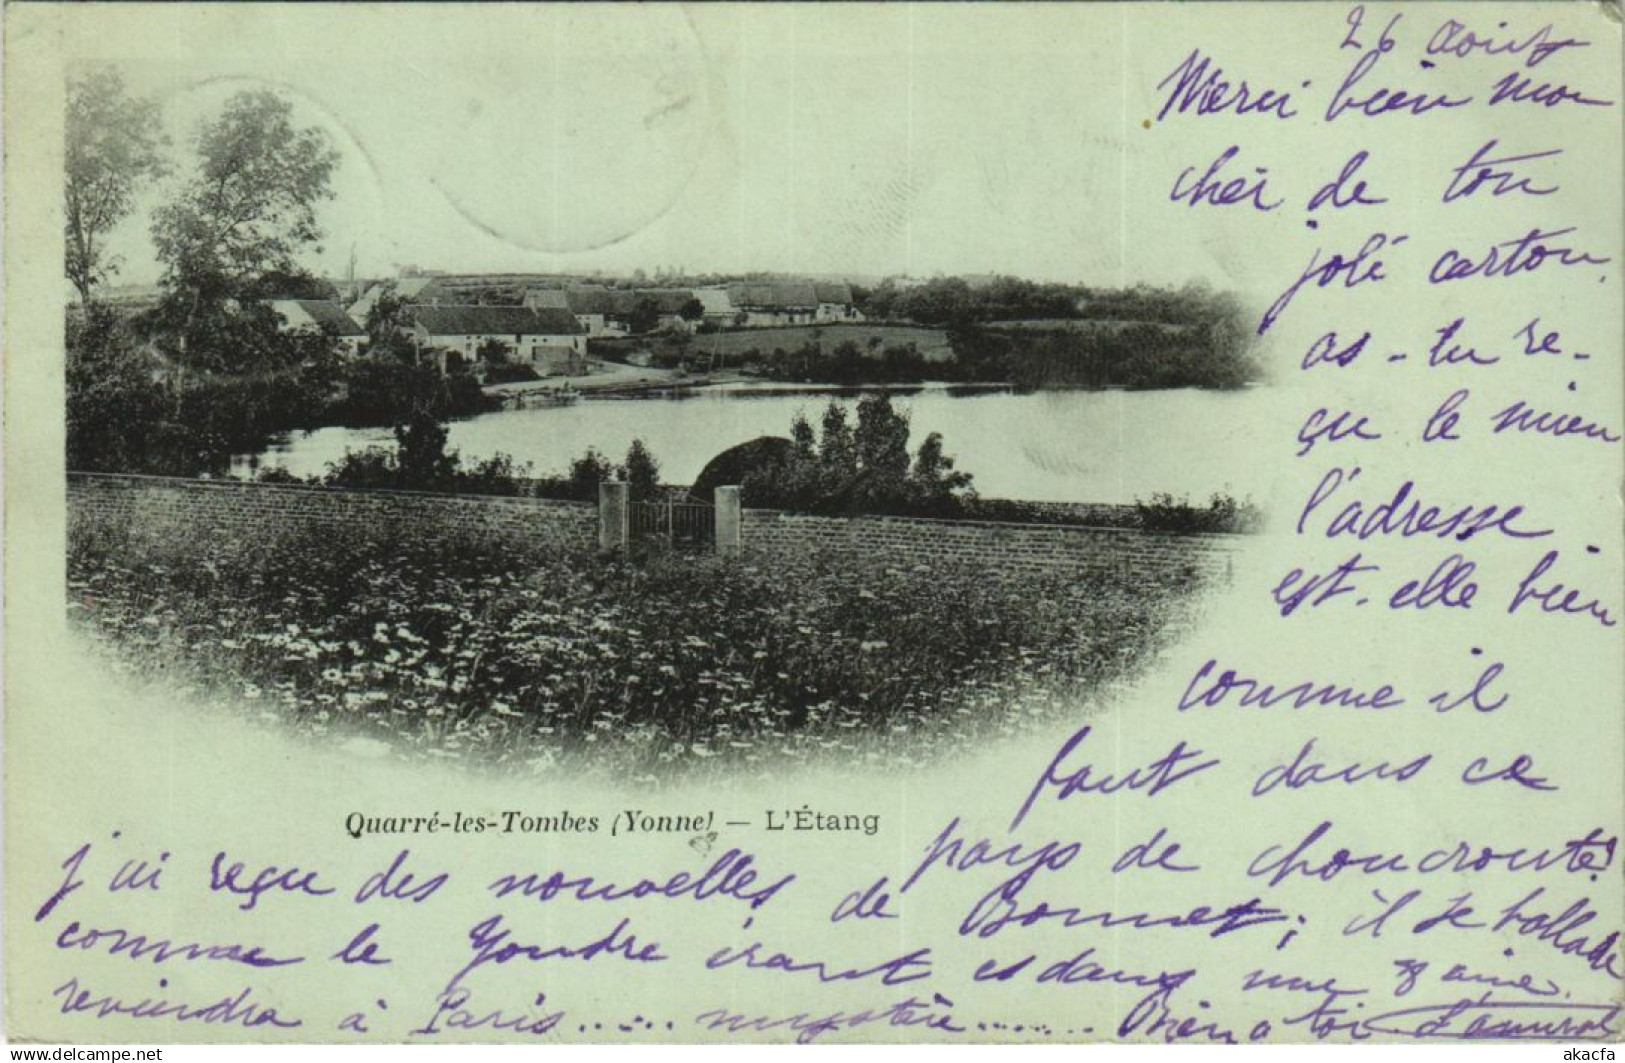 26 août
Merci bien mon
cher de ton
joli carton.
as-tu re-
çu le mien
l'adresse
est-elle bien
comme il
faut dans ce
pays de choucroute?
j'ai reçu des nouvelles de Bonnet; il se ballade
comme le Youdre errant et dans une 8aine
reviendra à Paris..... mystère....... Bien à toi L'amiral
Quarré-les-Tombes (Yonne) — L'Étang
akacfa
akacfa.com